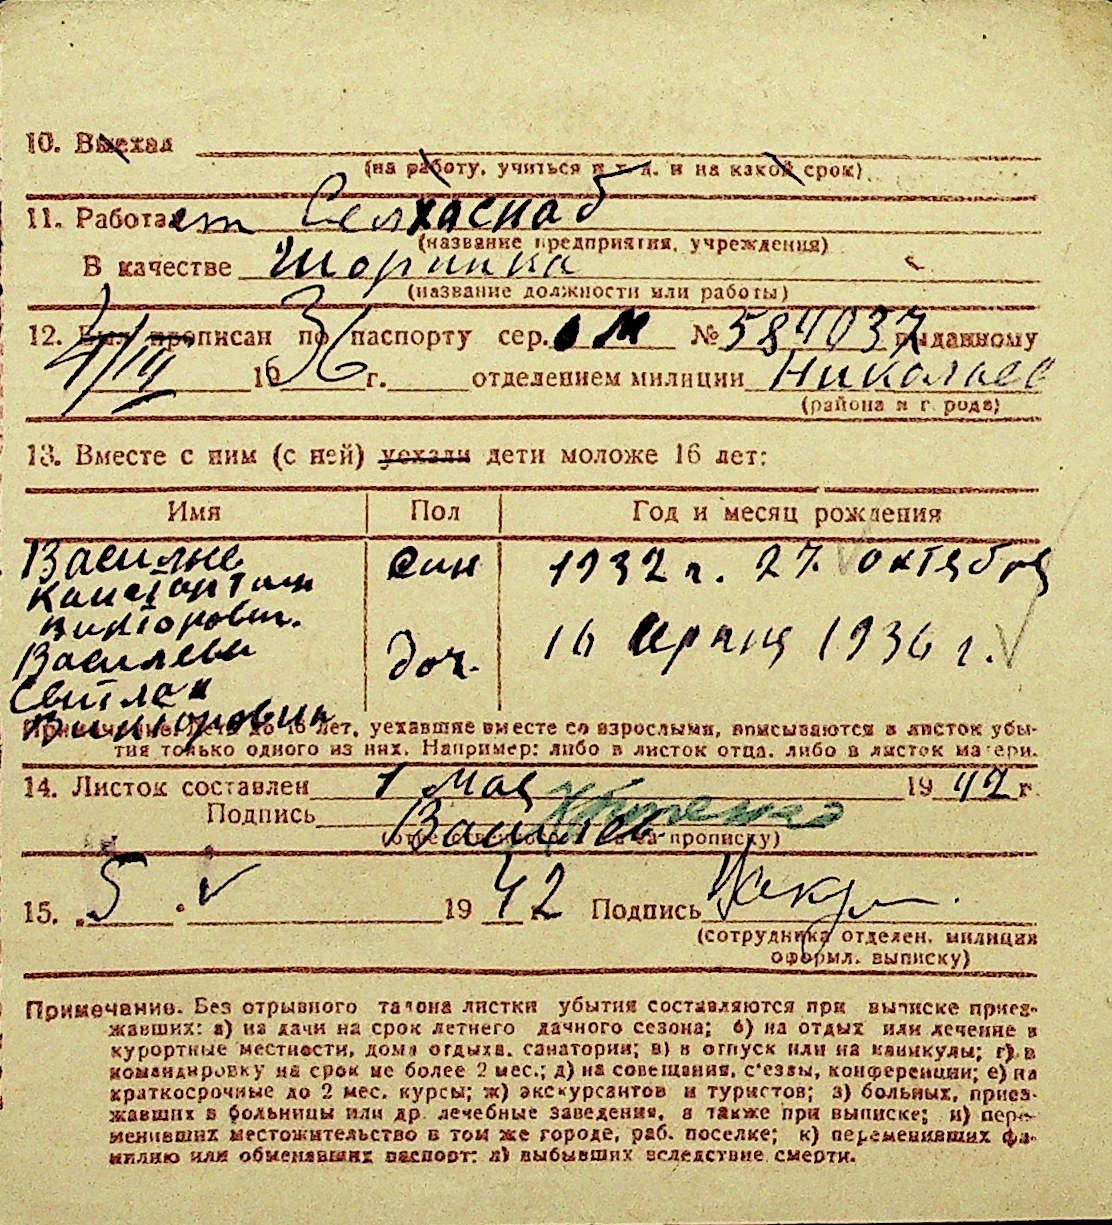 10. Выехал
(на работу, учиться и т. д. и на какой срок)
11. Работает Селхаснаб
(название предприятия, учреждения)
В качестве Шорника
(название должности или работы)
12. Был прописан по паспорту сер. ом № 584037 выданному
4/III 1936 г. отделением милиции Николаев
(района и города)
13. Вместе с ним (с ней) уехали дети моложе 16 лет:
Имя Пол Год и месяц рождения
Василие син 1932 г. 27 октября
Констортин
Викторович.
Василева доч. 16 1936 г.
Светлан
Викторовна
Примечание. Дети до 16 лет, уехавшие вместе со взрослыми, вписываются в листок убы-
тия только одного из них. Например: либо в листок отца, либо в листок матери.
14. Листок составлен 1 мая 1942 г.
Подпись Василев
(ответственного за прописку)
15. 5 V 1942 г. Подпись
(сотрудника отделен. милиции
оформл. выписку)
Примечание. Без отрывного талона листки убытия составляются при выписке приез-
жавших: а) на дачи на срок летнего дачного сезона; б) на отдых или лечение в
курортные местности, дома отдыха, санатории; в) в отпуск или на каникулы; г) в
командировку на срок не более 2 мес.; д) на совещания, с'езды, конференции; е) на
краткосрочные до 2 мес. курсы; ж) экскурсантов и туристов; з) больных, приез-
жавших в больницы или др. лечебные заведения, а также при выписке; и) пере-
менивших местожительство в том же городе, раб. поселке; к) переменивших фа-
милию или обменявших паспорт; л) выбывших вследствие смерти.